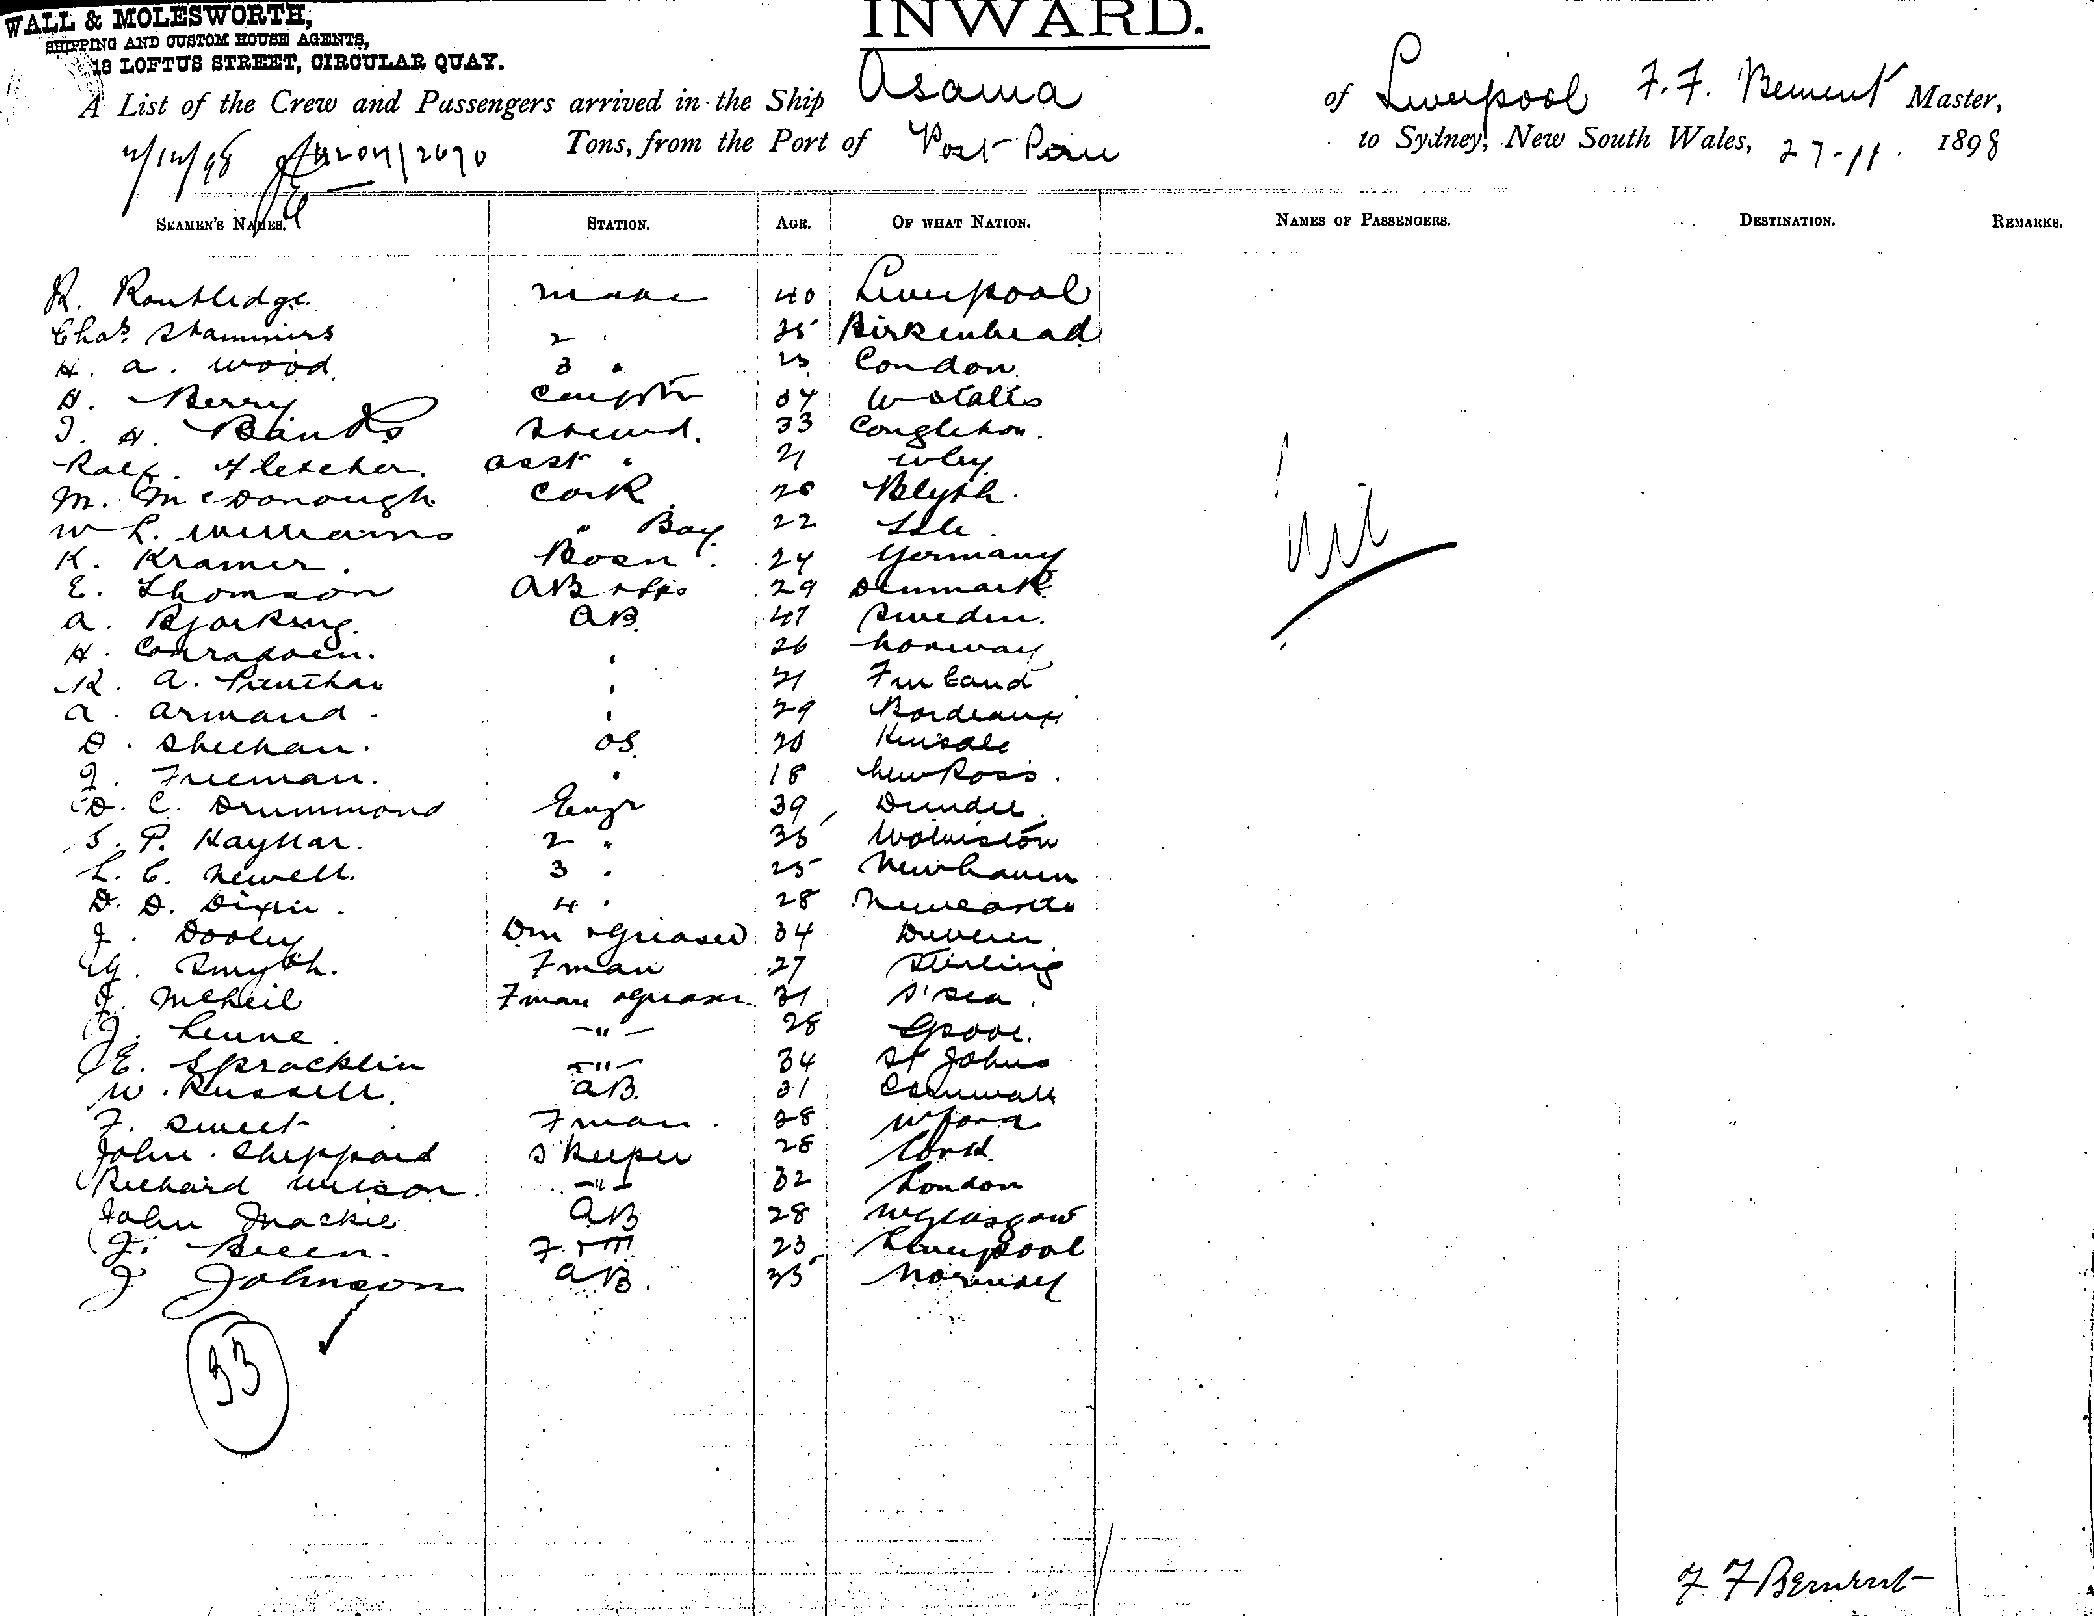 WALL & MOLESWORTH,
SHIPPING AND CUSTOM HOUSE AGENTS,
18 LOFTUS STREET, CIRCULAR QUAY.
INWARD.
A List of the Crew and Passengers arrived in the Ship Asama of Liverpool F. F. Bement Master,
Tons, from the Port of Port Pirie to Sydney, New South Wales, 27-11. 1898
SEAMEN'S NAMES. STATION. AGE. OF WHAT NATION. NAMES OF PASSENGERS. DESTINATION. REMARKS.
R. Routledge 40 Liverpool
Chas Stammers 2 " 35 Birkenhead
H. A. Wood 3 " London
H. Berry 34
J. H. Banks Steward. 33 Congleton.
Ralf. Fletcher. Asst " 21
M. McDonough Cook 20 Blyth.
W L. Williams " Boy 22
K. Kramer. Bosn 24 Germany
E. Thomson AB 29 Denmark
A. AB 47 Sweden.
H. Conradsen. " 26 Norway
K. A. " 21 Finland
A. Armand. " 29 Bordeaux
D. Sheehan. OS 20 Kinsale
J. Freeman. " 18 New Ross.
D. C. Drummond Engr 39 Dundee
S. P. 2 " 35 Wolviston
L. C. Newell. 3 " 25 Newhaven
D. D. Dixon. 4 " 28 Newcastle
J. Dooley Dm & Greaser 34
G. Smyth. Fman 27 Stirling
J. McNeil Fman & Greaser 31 S'sea
J. -"- 28 Lpool.
E. Spracklin -"- 34 St Johns
W. Russell. AB. 31 Cornwall
F. Sweet Fman. 28 Wford
John Sheppard S'keeper 28 Cork
Richard Wilson -"- 32 London
John Mackie AB 28 Glasgow
J. Breen. 23 Liverpool
J Johnson AB. 35 Norway
Nil
33
F F Bement